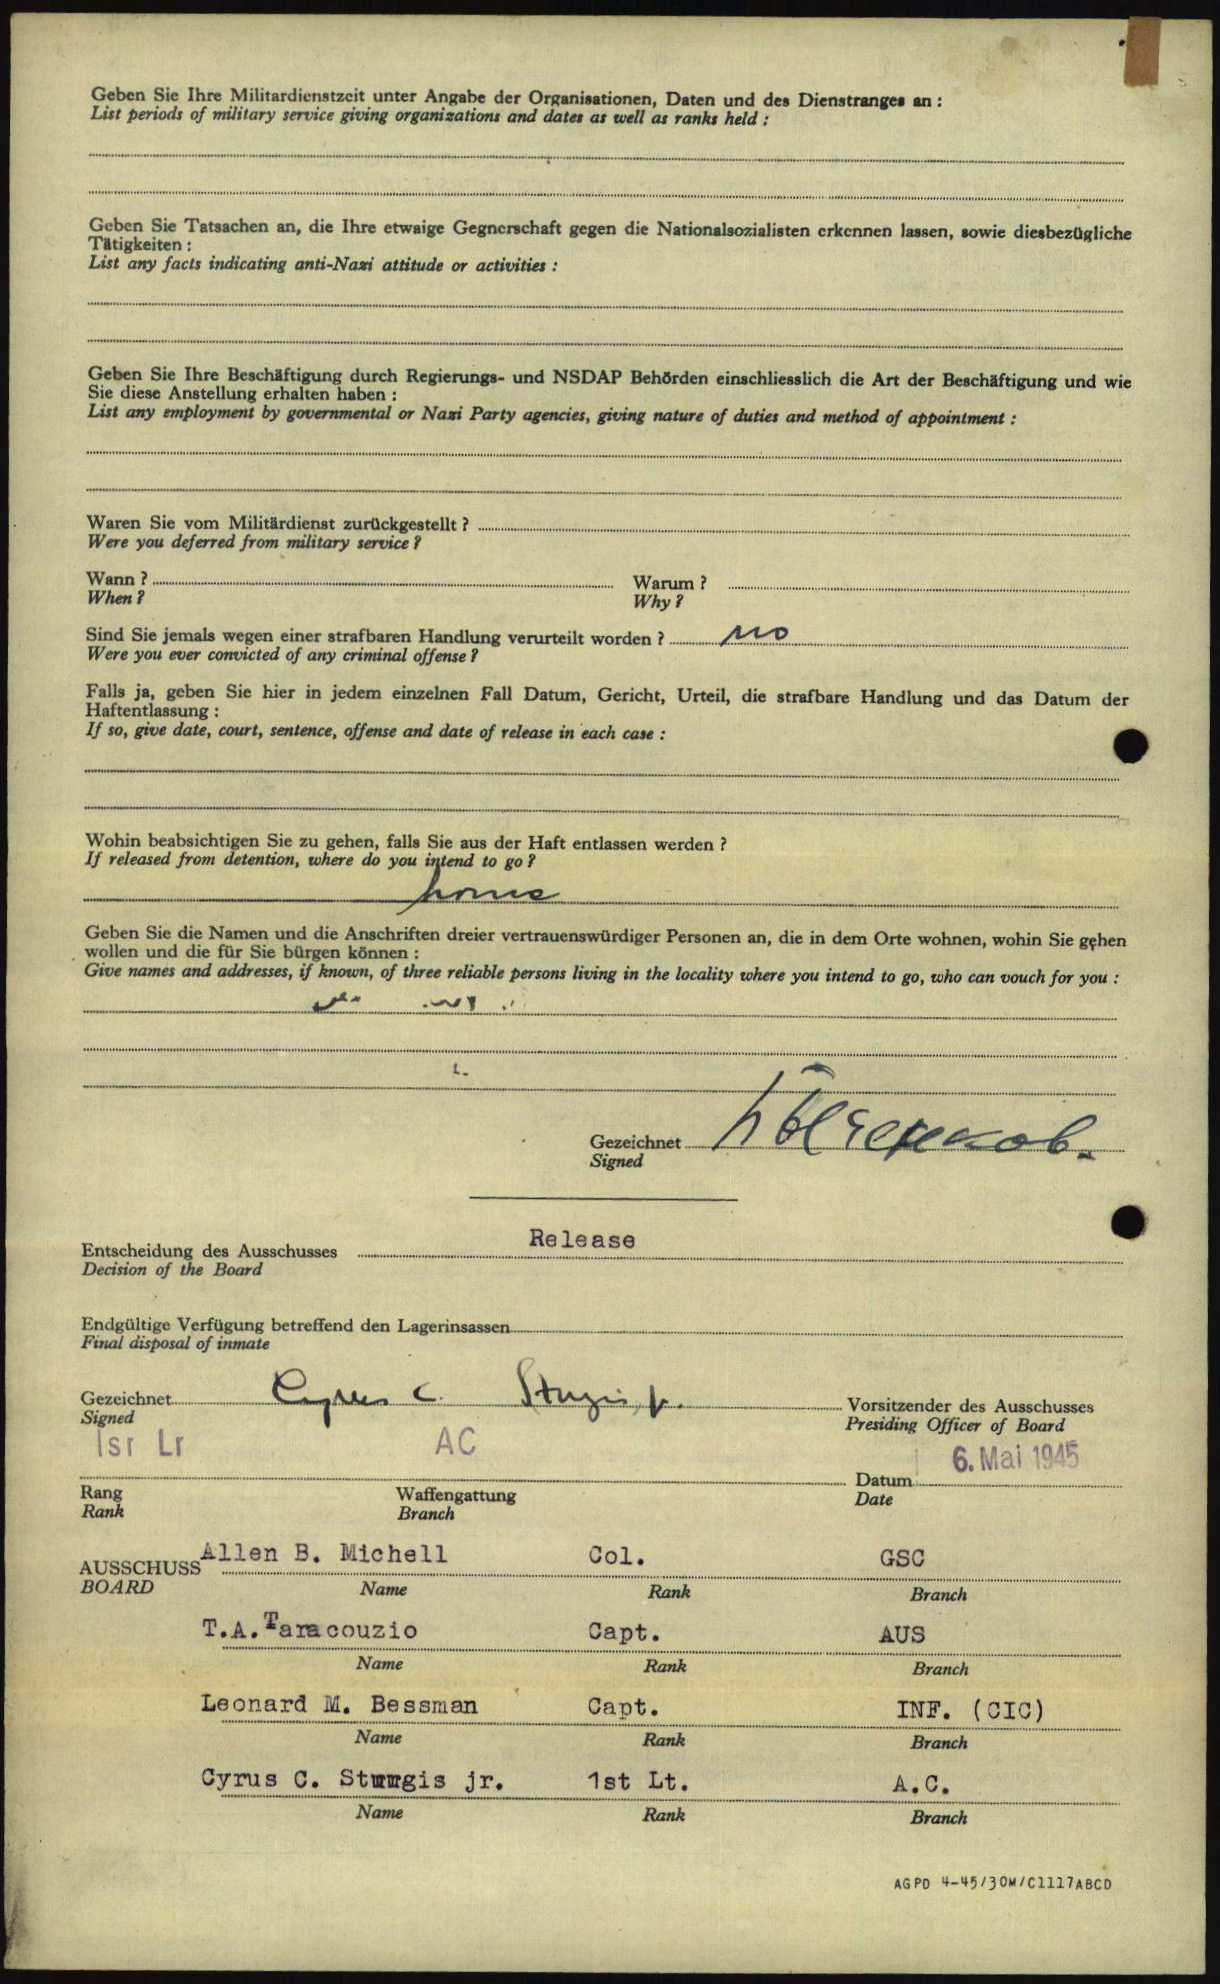 Geben Sie Ihre Militardienstzeit unter Angabe der Organisationen, Daten und des Dienstranges an :
List periods of military service giving organizations and dates as well as ranks held :
Geben Sie Tatsachen an, die Ihre etwaige Gegnerschaft gegen die Nationalsozialisten erkennen lassen, sowie diesbezügliche
Tätigkeiten :
List any facts indicating anti-Nazi attitude or activities :
Geben Sie Ihre Beschäftigung durch Regierungs- und NSDAP Behörden einschliesslich die Art der Beschäftigung und wie
Sie diese Anstellung erhalten haben :
List any employment by governmental or Nazi Party agencies, giving nature of duties and method of appointment :
Waren Sie vom Militärdienst zurückgestellt ?
Were you deferred from military service ?
Wann ? Warum ?
When ? Why ?
Sind Sie jemals wegen einer strafbaren Handlung verurteilt worden ? no
Were you ever convicted of any criminal offense ?
Falls ja, geben Sie hier in jedem einzelnen Fall Datum, Gericht, Urteil, die strafbare Handlung und das Datum der
Haftentlassung :
If so, give date, court, sentence, offense and date of release in each case :
Wohin beabsichtigen Sie zu gehen, falls Sie aus der Haft entlassen werden ?
If released from detention, where do you intend to go ?
home
Geben Sie die Namen und die Anschriften dreier vertrauenswürdiger Personen an, die in dem Orte wohnen, wohin Sie gehen
wollen und die für Sie bürgen können :
Give names and addresses, if known, of three reliable persons living in the locality where you intend to go, who can vouch for you :
Gezeichnet
Signed
Release
Entscheidung des Ausschusses
Decision of the Board
Endgültige Verfügung betreffend den Lagerinsassen
Final disposal of inmate
Gezeichnet Cyrus C. Sturgis, jr. Vorsitzender des Ausschusses
Signed Presiding Officer of Board
1sr Lr AC 6. Mai 1945
Datum
Rang Waffengattung Date
Rank Branch
Allen B. Michell Col. GSC
AUSSCHUSS
BOARD Name Rank Branch
T.A.Taracouzio Capt. AUS
Name Rank Branch
Leonard M. Bessman Capt. INF. (CIC)
Name Rank Branch
Cyrus C. Sturgis jr. 1st Lt. A.C.
Name Rank Branch
AGPD 4-45/30M/C1117ABCD